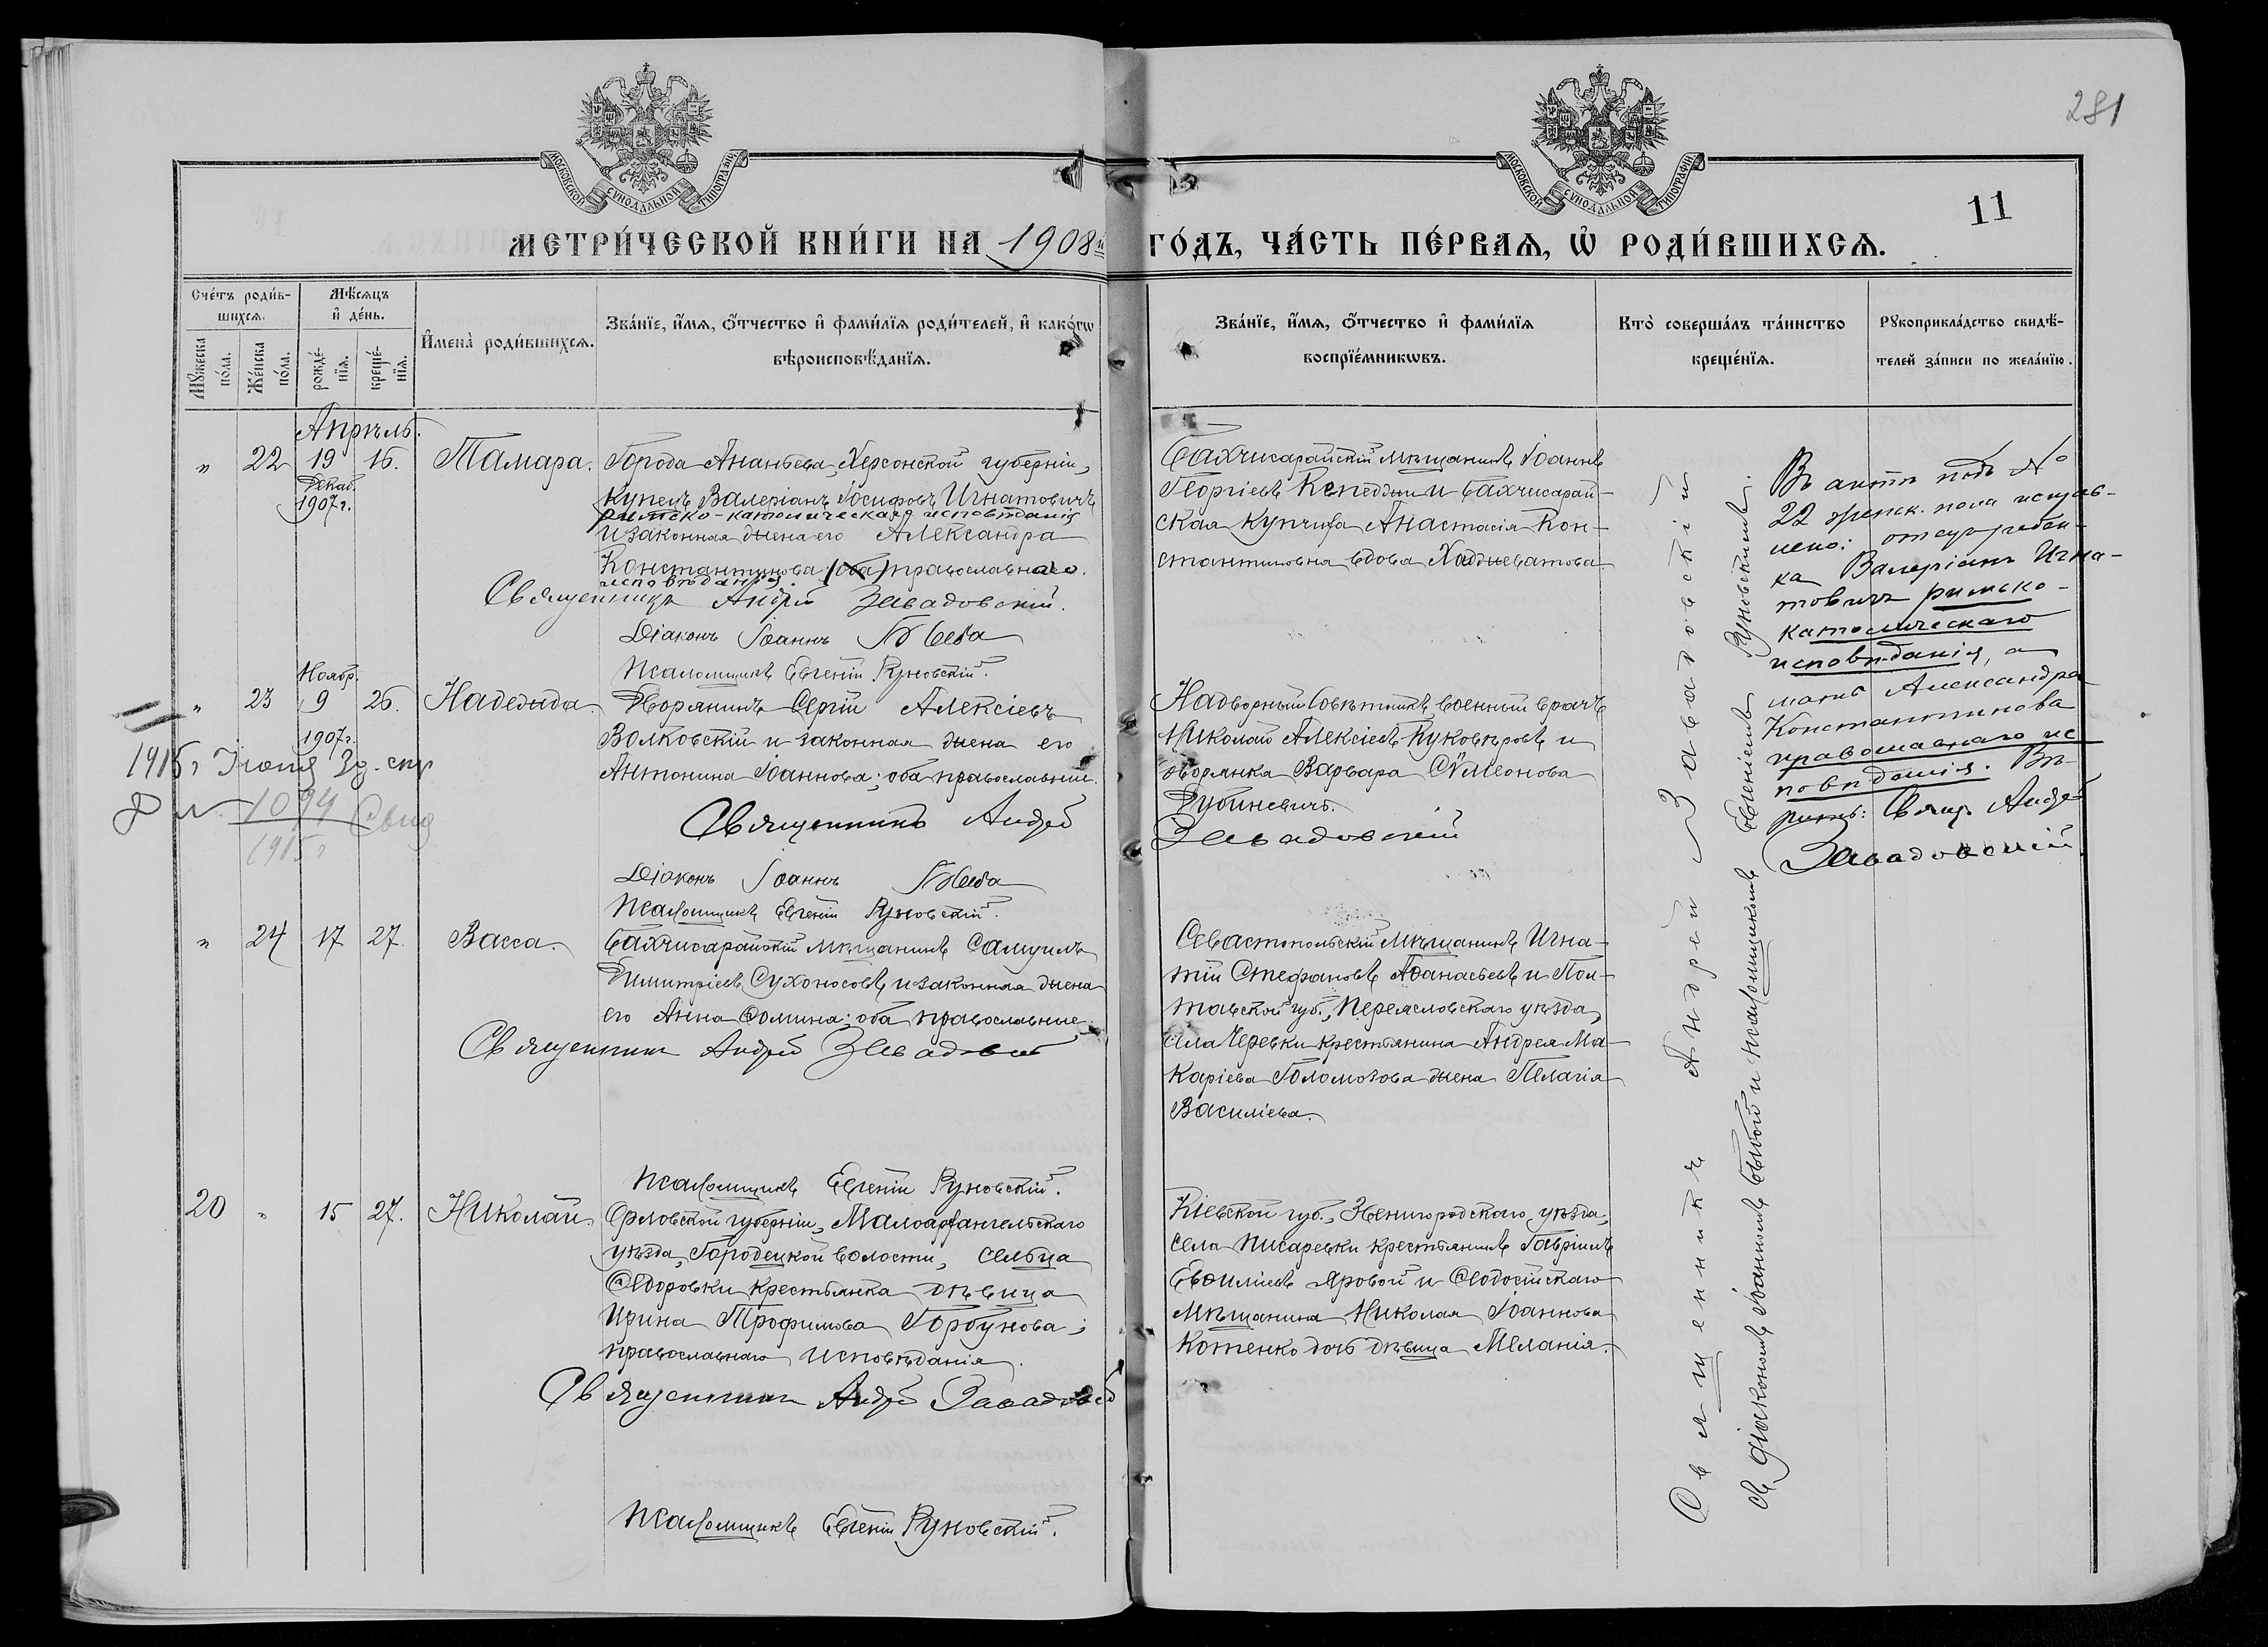 281
11
МОСКОВСКОЙ СѴНОДАЛЬНОЙ ТИПОГРАФІИ
МОСКОВСКОЙ СѴНОДАЛЬНОЙ ТИПОГРАФІИ
МЕТРИ́ЧЕСКОЙ КНИ́ГИ НА 1908й ГО́ДЪ, ЧА́СТЬ ПЕ́РВАѦ, Ѡ҆ РОДИ́ВШИХСѦ.
Сче́тъ роди́вшихсѧ.
Мꙋ́жеска по́ла.
Же́нска по́ла.
Мѣ́сѧцъ и҆ де́нь.
рожде́нїѧ.
креще́нїѧ.
И҆мена̀ роди́вшихсѧ.
Зва́нїе, и҆́мѧ, ѻ҆́тчество и҆ фами́лїѧ роди́телей, и҆ како́гѡ
вѣроисповѣ́данїѧ.
Зва́нїе, и҆́мѧ, ѻ҆́тчество и҆ фами́лїѧ
воспрїе́мникѡвъ.
Кто̀ соверша́лъ та́инство
креще́нїѧ.
Рꙋкоприкла́дство свидѣ́-
телей за́писи по жела́нїю.
Апрѣль.
" 22 19 16. Тамара.
Декаб.
1907 г.
Города Ананьева, Херсонской губерніи,
купецъ Валеріанъ Іосифовъ Игнатовичъ
римско-католическаго исповѣданія
и законная жена его Александра
Константинова (оба) православнаго
исповѣданія.
Священникъ Андрей Завадовскій.
Діаконъ Іоаннъ
Псаломщикъ Евгеній Руновскій.
Бахчисарайскій мѣщанинъ Іоаннъ
Георгіевъ Кепеджи и Бахчисарай-
ская купчиха Анастасія Кон-
стантиновна вдова Хаджеватова
Въ актѣ подъ №
22 женск. пола исправ-
лено: отецъ ребен-
ка Валеріанъ Игна-
товичъ римско-
католическаго
исповѣданія, а
мать Александра
Константинова
православнаго ис
повѣданія. Вѣ-
рить: Свящ. Андрей
Завадовскій
Ноябр.
" 23 9 26. Надежда.
1907 г.
Дворянинъ Сергій Алексіевъ
Волковскій и законная жена его
Антонина Іоаннова; оба православные.
Священникъ Андрей
Завадовскій
Діаконъ Іоаннъ
Псаломщикъ Евгеній Руновскій.
Надворный Совѣтникъ военный врачъ
Николай Алексіевъ Куковѣровъ и
дворянка Варвара Сѵмеонова
Дубиневичъ.
1915 г Іюня 30
1094
1915 г
" 24 17 27. Васса.
Бахчисарайскій мѣщанинъ Самуилъ
Димитріевъ Сухоносовъ и законная жена
его Анна Ѳомина; оба православные.
Священникъ Андрей Завадовскій
Псаломщикъ Евгеній Руновскій.
Севастопольскій мѣщанинъ Игна-
тій Стефановъ Аѳанасьевъ и Пол-
тавской губ., Переяславскаго уѣзда,
села Черевки крестьянина Андрея Ма-
каріева Голомозова жена Пелагія
Василіева.
20 " 15 27. Николай.
Орловской губерніи, Малоархангельскаго
уѣзда, Городецкой волости, сельца
Ѳедоровки крестьянка дѣвица
Ирина Трофимова Горбунова;
православнаго исповѣданія.
Священникъ Андрей Завадовскій
Псаломщикъ Евгеній Руновскій.
Кіевской губ., Звенигородскаго уѣзда,
села Писаревки крестьянинъ Гавріилъ
Евѳиміевъ Яровой и Ѳеодосійскаго
мѣщанина Николая Іоаннова
Котенко дочь дѣвица Меланія.
Священникъ Андрей Завадовскій
съ діакономъ Іоанномъ и псаломщикомъ Евгеніемъ Руновскимъ.